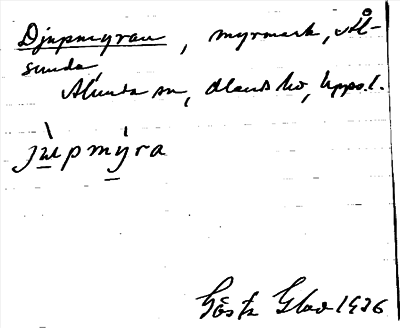 Djupmyran, myrmark, Ål-
sunda
Alunda sn, Olands hd, Upps.l.
jùpmýra
Gösta 1936